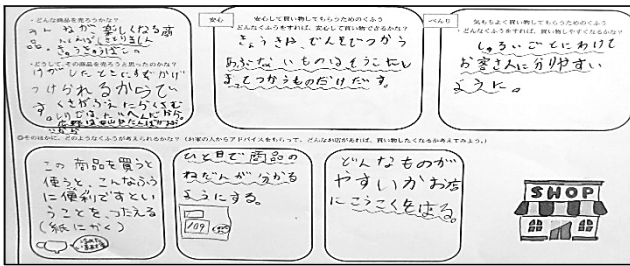 ・どんな商品を売ろうかな?
ねが楽しくなる商
・どうして、その商品を売ろうと思ったのかな?
けがしたときに
つけられるからで
す。
安心
安心して買い物してもらうためのくふう
・どんなくふうをすれば、安心して買い物できるかな?
きょうきは、でんそでつかう
あぶないものはそうこにし
まってつかうものだけだす。
べんり
気もちよく買い物してもらうためのくふう
・どんなくふうをすれば、買い物しやすくなるかな?
しゅるいごとにわけて
お客さんに分りやすい
ように。
◎そのほかに、どのようなくふうが考えられるかな?(お家の人からアドバイスをもらって、どんなお店があれば、買い物したくなるか考えてみよう。)
この商品を買うと
使うと、こんなふう
に便利ですとい
うことを、つたえる
(紙にかく)
ひと目で商品の
ねだんが分かる
ようにする。
109
どんなものが
やすいかお店
にこうこくをはる。
SHOP